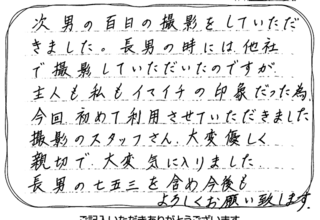 次男の百日の撮影をしていただ
きました。長男の時には他社
で撮影していただいたのですが
主人も私もイマイチの印象だった為、
今回初めて利用させていただきました
撮影のスタッフさん、大変優しく
親切で、大変気に入りました。
長男の七五三を含め今後も
よろしくお願い致します。
ご記入いただきありがとうございます